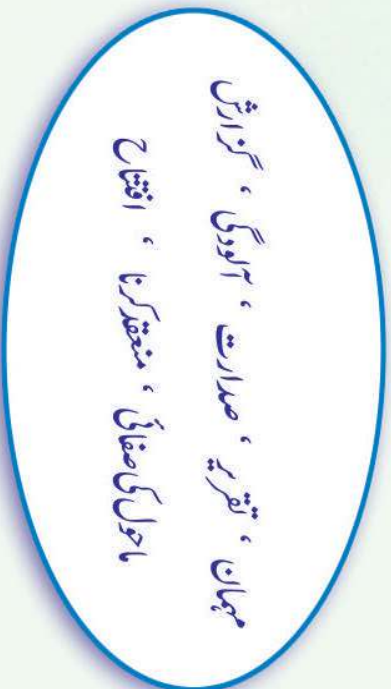 مہمان ، تقریر ، صدارت ، آلودگی ، گزارش
ماحول کی صفائی ، منعقد کرنا ، افتتاح